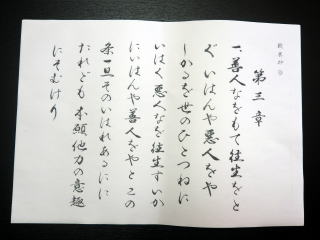 歎異抄
第三章
一、善人なをもて往生をと
ぐ いはんや悪人をや
しかるを世のひとつねに
いはく 悪人なを往生す いか
にいはんや善人をやと この
条一旦そのいはれあるにに
たれども 本願他力の意趣
にそむけり